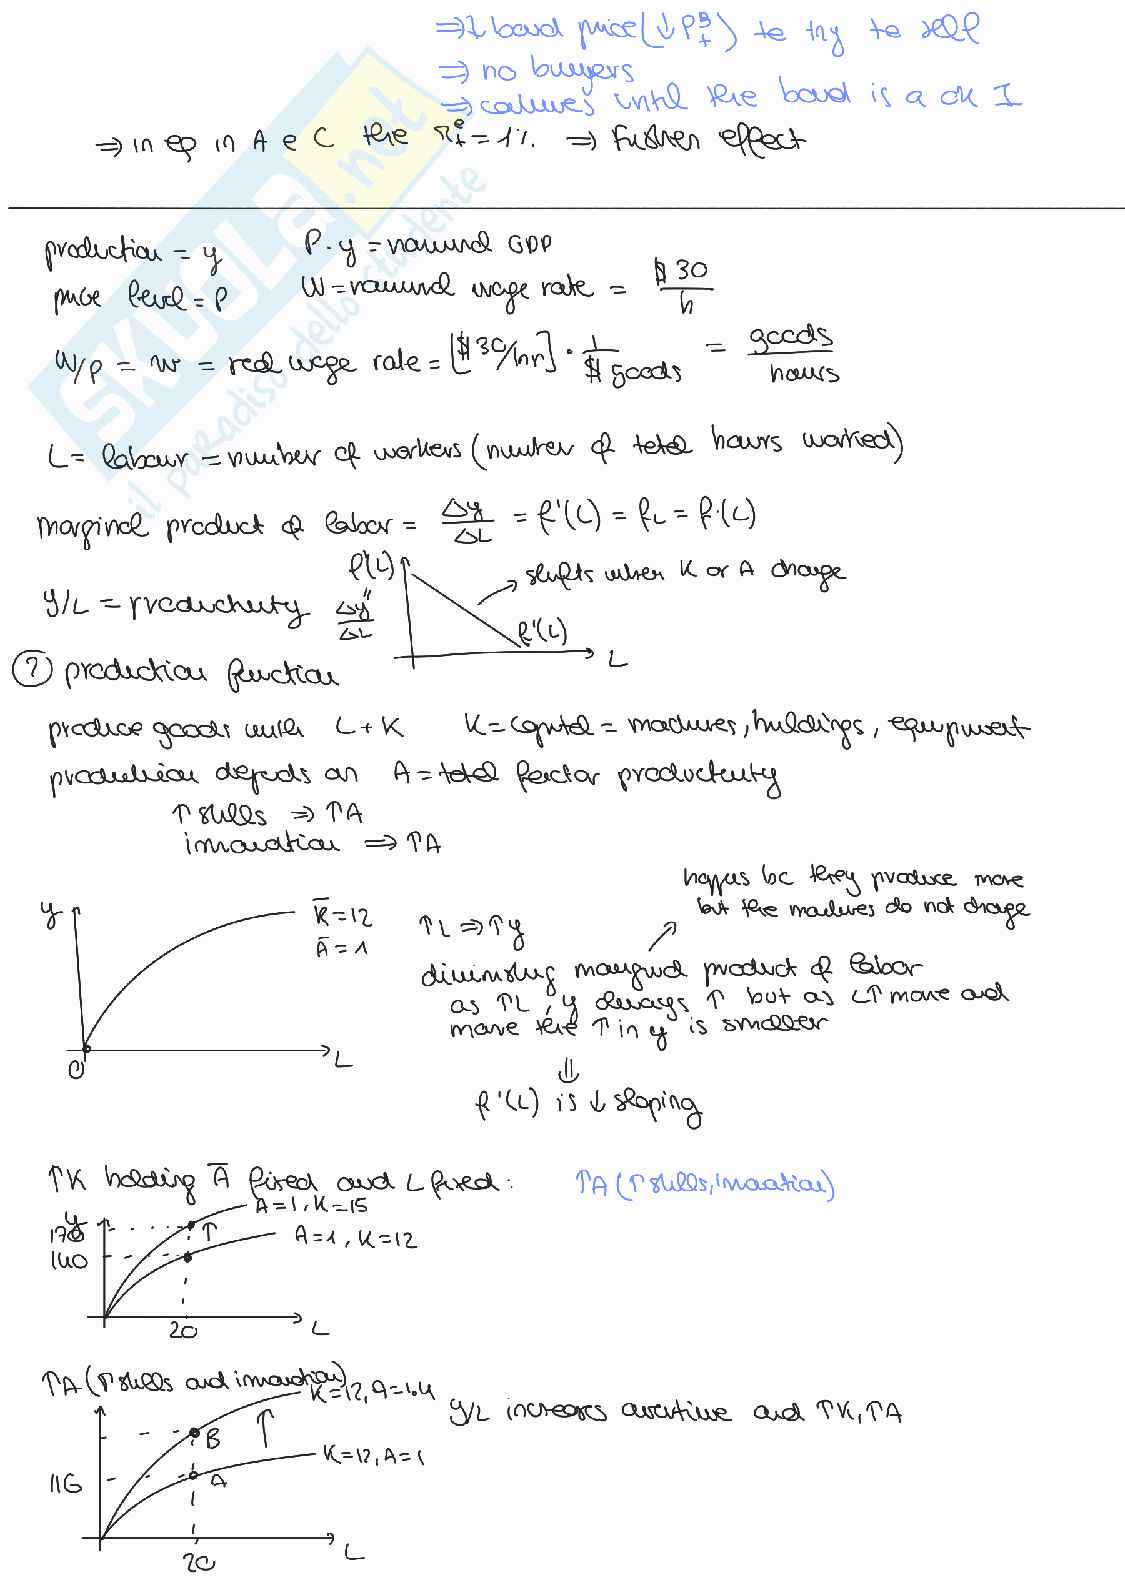 ⇒ ↓ bond price (↓ P_t^B) to try to sell
⇒ no buyers
⇒ continues until the bond is a ok I
⇒ in eq in A e C the π_t^e = 1%. ⇒ further effect
SKUOLA.net
il paradiso dello studente
production = y    P·y = nominal GDP
price level = P    W = nominal wage rate = $30/h
W/P = w = real wage rate = [$30/hr] · 1/$ goods = goods/hours
L = labour = number of workers (number of total hours worked)
marginal product of labor = Δy/ΔL = f'(L) = f_L = f·(L)
f'(L)
shifts when K or A change
y/L = productivity    Δy/ΔL
f'(L)
L
② production function
produce goods with L + K    K = capital = machines, buildings, equipment
production depends on A = total factor productivity
↑ skills ⇒ ↑A
innovation ⇒ ↑A
happens bc they produce more
but the machines do not change
y
K̄ = 12
Ā = 1
↑L ⇒ ↑y
diminishing marginal product of labor
as ↑L, y always ↑ but as L↑ more and
more the ↑ in y is smaller
0    L
⇓
f'(L) is ↓ sloping
↑K holding Ā fixed and L fixed:    ↑A (↑ skills, innovation)
A=1, K=15
y
170    ↑    A=1, K=12
140
20    L
↑A (↑ skills and innovation)
K=12, A=1.4
y/L increases overtime and ↑K, ↑A
B
K=12, A=1
116    A
20    L